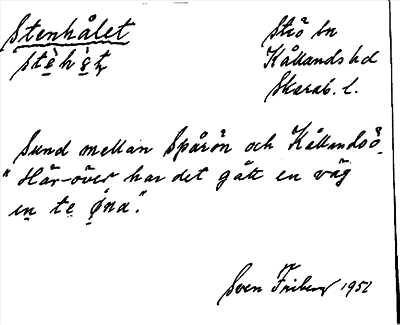 Stenhålet
Strö sn
Kållands hd
Skarab. l.
Sund mellan Spårön och Kållandsö.
"Här-över har det gått en väg
en te øna".
Sven Friberg 1951